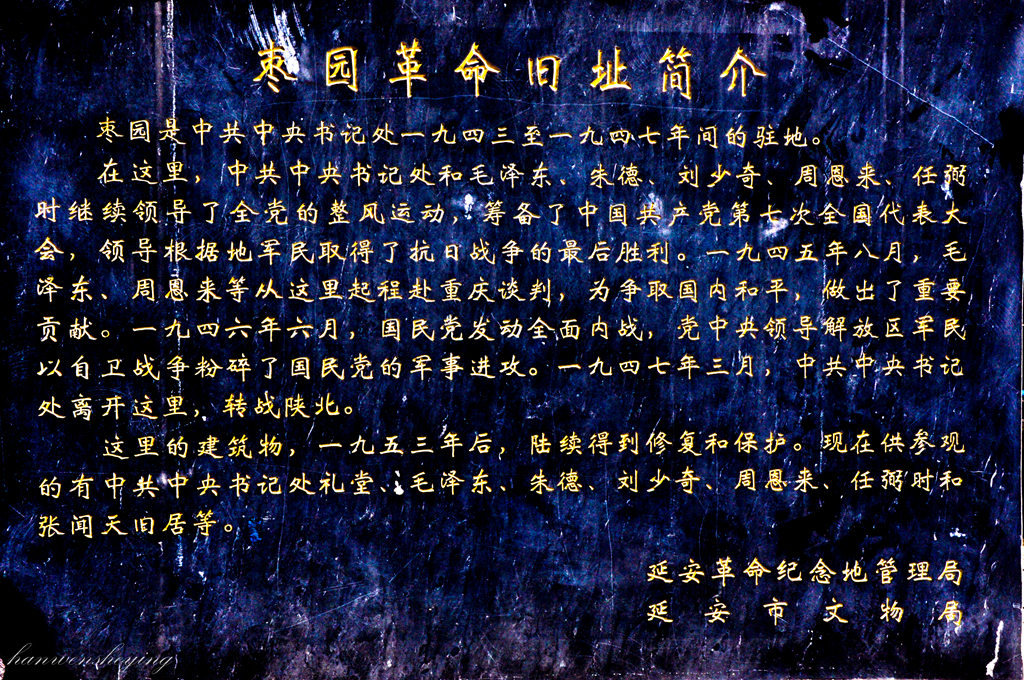 枣园革命旧址简介
枣园是中共中央书记处一九四三至一九四七年间的驻地。
在这里，中共中央书记处和毛泽东、朱德、刘少奇、周恩来、任弼
时继续领导了全党的整风运动，筹备了中国共产党第七次全国代表大
会，领导根据地军民取得了抗日战争的最后胜利。一九四五年八月，毛
泽东、周恩来等从这里起程赴重庆谈判，为争取国内和平，做出了重要
贡献。一九四六年六月，国民党发动全面内战，党中央领导解放区军民
以自卫战争粉碎了国民党的军事进攻。一九四七年三月，中共中央书记
处离开这里，转战陕北。
这里的建筑物，一九五三年后，陆续得到修复和保护。现在供参观
的有中共中央书记处礼堂、毛泽东、朱德、刘少奇、周恩来、任弼时和
张闻天旧居等。
延安革命纪念地管理局
延安市文物局
hanwensheying